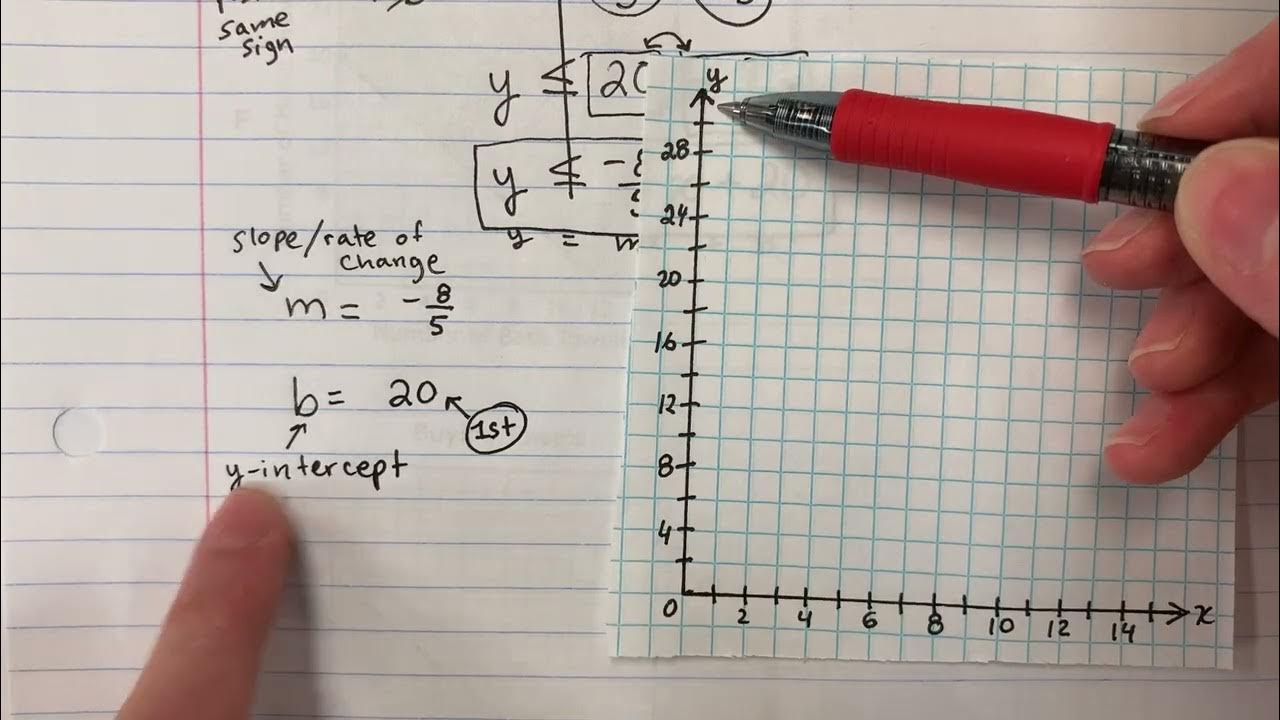 same
sign
y ≤ 20
y ≤ -
y = m
slope/rate of
change
m = -8/5
b = 20
1st
y-intercept
y
28
24
20
16
12
8
4
0
2 4 6 8 10 12 14 x